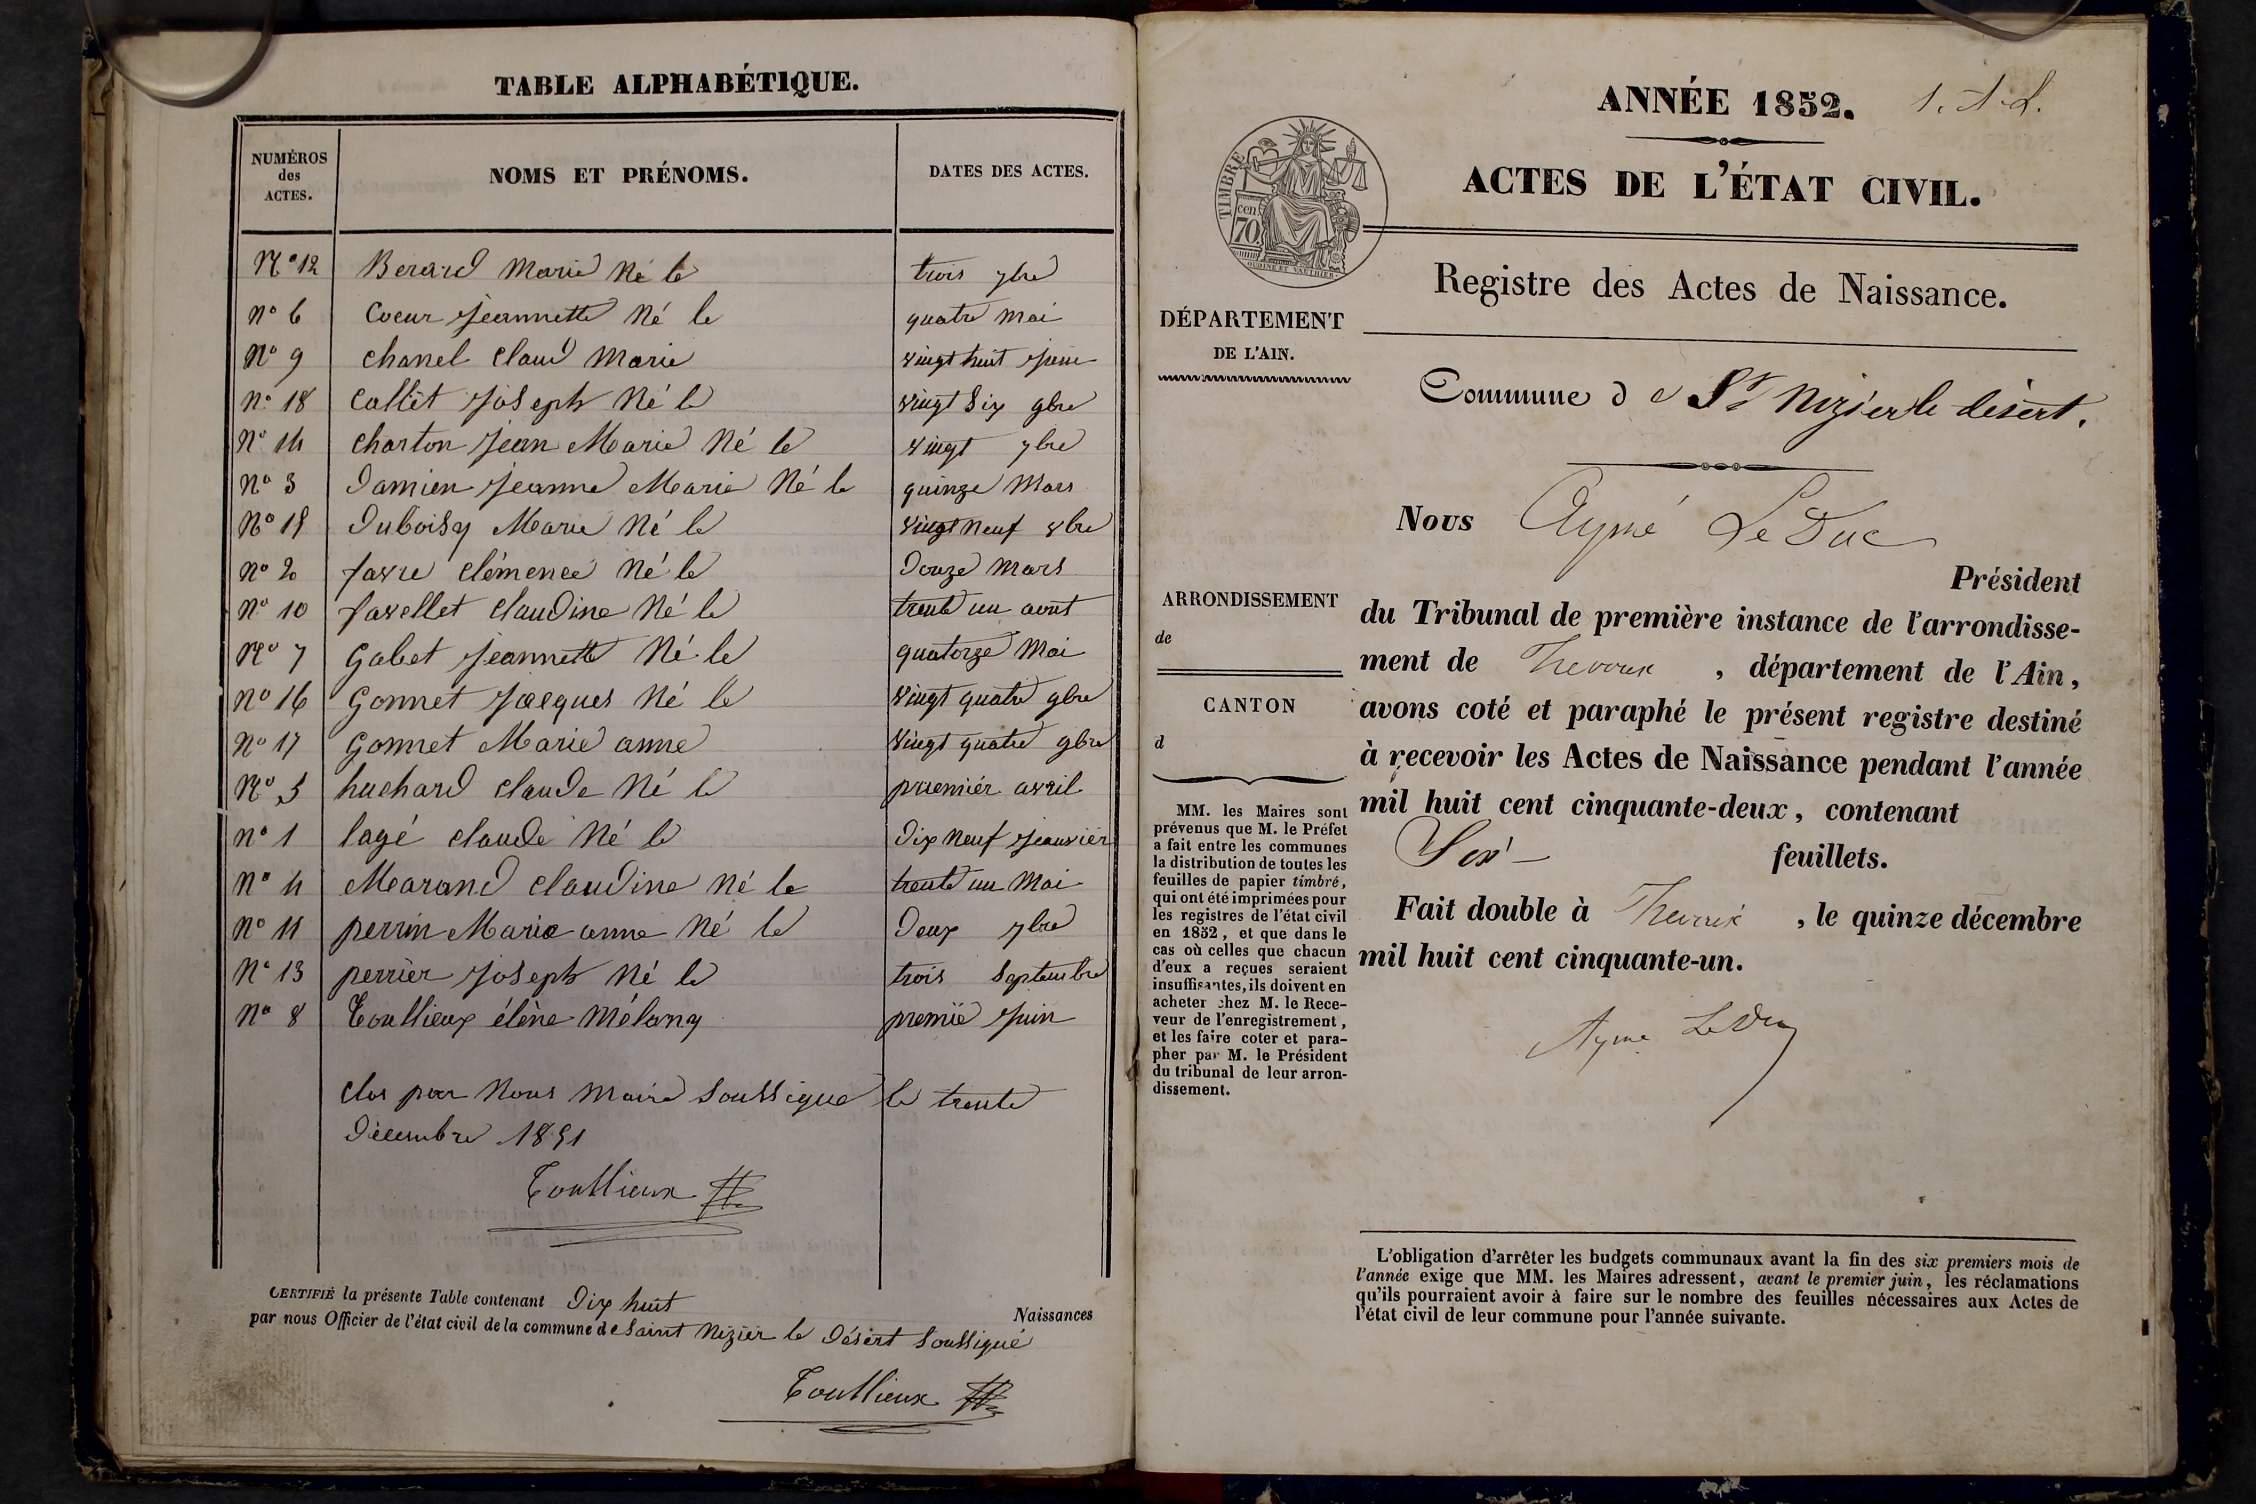 TABLE ALPHABÉTIQUE.
NUMÉROS
des
ACTES.
NOMS ET PRÉNOMS.
DATES DES ACTES.
N° 12 Berard Marie Né le trois 7bre
n° 6 Coeur Jeannette Né le quatre Mai
N° 9 chanel Claud Marie vingt huit Juin
N° 18 Collet Joseph Né le vingt Six 9bre
N° 14 charton Jean Marie Né le vingt 7bre
N° 3 Damien Jeanne Marie Né le quinze Mars
N° 15 Duboisy Marie Né le vingt neuf 8bre
n° 2 favre clémence Né le Douze Mars
N° 10 favellet Claudine Né le trente un aout
N° 7 Gabet Jeannette Né le quatorze Mai
n° 16 Gonnet Jacques Né le vingt quatre 9bre
N° 17 Gonnet Marie anne vingt quatre 9bre
N° 5 huchard claude Né le premiér avril
n° 1 lagé claude Né le Dix Neuf Jeanvier
N° 4 Marand Claudine Né le trente un Mai
N° 11 perrin Marie anne Né le Deux 7bre
N° 13 perrier Joseph Né le trois Septembre
N° 8 Toullieux éléne Mélany premie Juin
clos par Nous Maire Soussigné le trente
Décembre 1851
Toullieux
CERTIFIÉ la présente Table contenant Dix huit Naissances
par nous Officier de l'état civil de la commune de Saint Nizier le Désert Soussigné
Toullieux
ANNÉE 1852.
ACTES DE L'ÉTAT CIVIL.
TIMBRE
cen
70
OUDINÉ ET VAUTHIER
Registre des Actes de Naissance.
DÉPARTEMENT
DE L'AIN.
Commune d e St Nizier le désert.
Nous Aymé LeDuc
Président
du Tribunal de première instance de l'arrondisse-
ment de Trevoux , département de l'Ain,
avons coté et paraphé le présent registre destiné
à recevoir les Actes de Naissance pendant l'année
mil huit cent cinquante-deux, contenant
Six feuillets.
Fait double à Trevoux , le quinze décembre
mil huit cent cinquante-un.
Aymé LeDuc
ARRONDISSEMENT
de
CANTON
d
MM. les Maires sont
prévenus que M. le Préfet
a fait entre les communes
la distribution de toutes les
feuilles de papier timbré,
qui ont été imprimées pour
les registres de l'état civil
en 1852, et que dans le
cas où celles que chacun
d'eux a reçues seraient
insuffisantes, ils doivent en
acheter chez M. le Rece-
veur de l'enregistrement,
et les faire coter et para-
pher par M. le Président
du tribunal de leur arron-
dissement.
L'obligation d'arrêter les budgets communaux avant la fin des six premiers mois de
l'année exige que MM. les Maires adressent, avant le premier juin, les réclamations
qu'ils pourraient avoir à faire sur le nombre des feuilles nécessaires aux Actes de
l'état civil de leur commune pour l'année suivante.